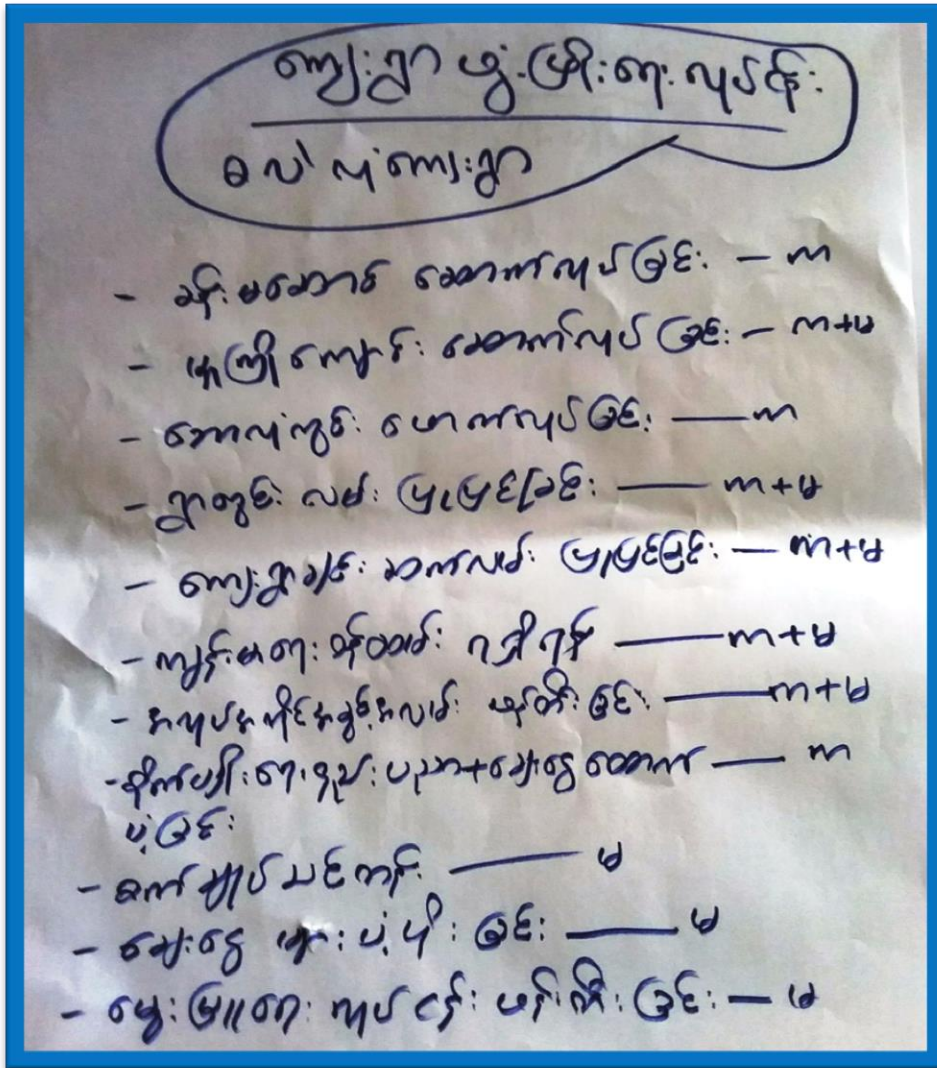 ကျေးရွာ ဖွံ့ဖြိုးရေး လုပ်ငန်း
စလုံကျေးရွာ
- ဘုန်းမဆောင် ဆောက်လုပ်ခြင်း - က
- မူကြိုကျောင်း ဆောက်လုပ်ခြင်း - က+မ
- ဘောလုံးကွင်း ဖောက်လုပ်ခြင်း — က
- ရွာတွင်း လမ်း ပြုပြင်ခြင်း — က+မ
- ကျေးရွာချင်း ဆက်လမ်း ပြုပြင်ခြင်း — က+မ
- ကျန်းမာရေး ဝန်ထမ်း ရရှိရန် — က+မ
- အလုပ်အကိုင်အခွင့်အလမ်း ဖန်တီးခြင်း — က+မ
- စိုက်ပျိုးရေးနည်းပညာ+ချေးငွေ ထောက် — က
ပံ့ခြင်း
- စက်ချုပ်သင်တန်း — မ
- ချေးငွေ ပံ့ပိုးခြင်း — မ
- မွေးမြူရေး လုပ်ငန်း ဖန်တီးခြင်း — မ